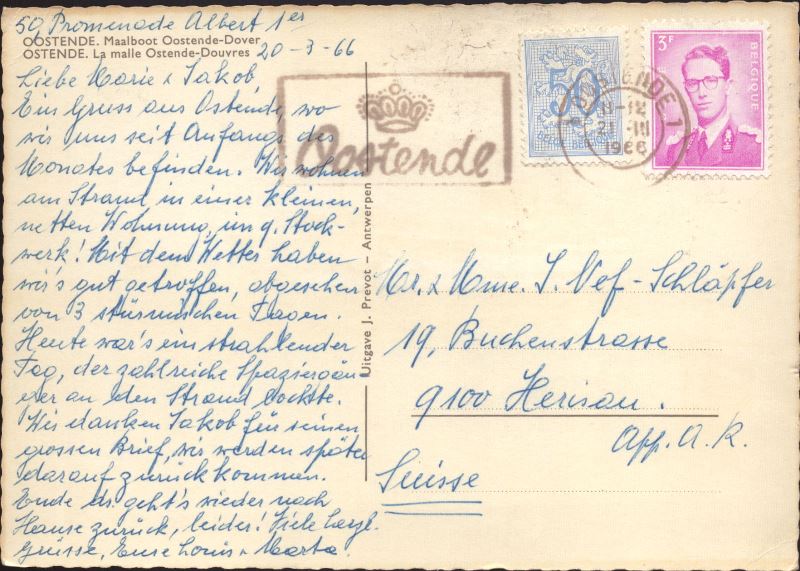 50, Promenade Albert 1er
OOSTENDE. Maalboot Oostende-Dover
OSTENDE. La malle Ostende-Douvres
20-3-66
Liebe Marie & Jakob,
Ein Gruss aus Ostende, wo
wir uns seit Anfangs des
Monates befinden. Wir wohnen
am Strand in einer kleinen,
netten Wohnung, im 9. Stock-
werk! Mit dem Wetter haben
wir's gut getroffen, abgesehen
von 3 stürmischen Tagen.
Heute war's ein strahlender
Tag, der zahlreiche Spaziergän-
ger an den Strand lockte.
Wir danken Jakob für seinen
grossen Brief, wir werden später
darauf zurückkommen.
Ende ds. geht's wieder nach
Hause zurück, leider! Viele herzl.
Grüsse, Eure Louis & Marta.
Oostende
Uitgave J. Prevot - Antwerpen
50
BELGIE-BELGIQUE
3F
BELGIQUE
OOSTENDE 1
21-III
1966
Mr. & Mme. J. Nef-Schläpfer
19, Buchenstrasse
9100 Herisau.
App. A. R.
Suisse